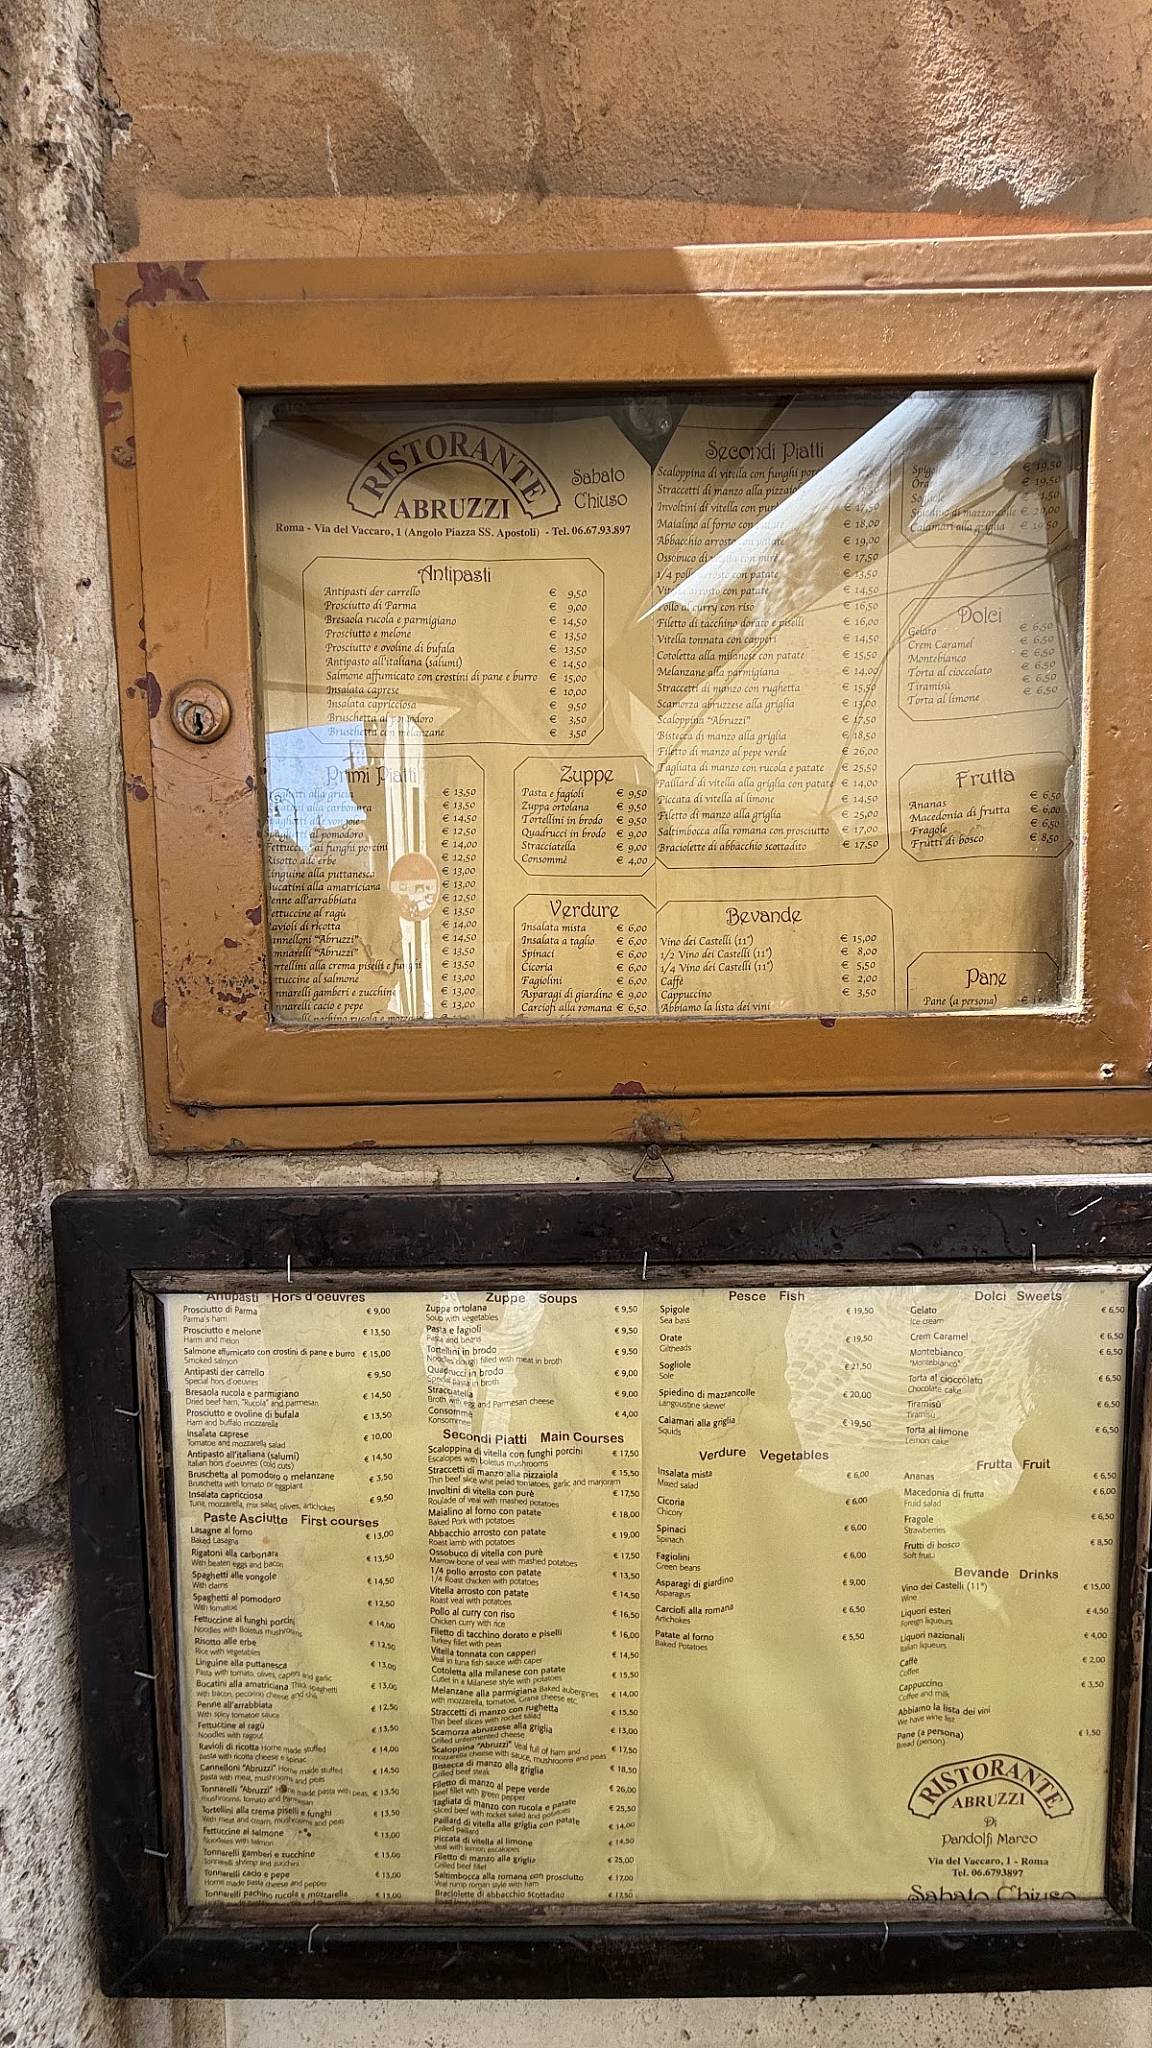 RISTORANTE
ABRUZZI
Sabato
Chiuso
Roma - Via del Vaccaro, 1 (Angolo Piazza SS. Apostoli) - Tel. 06.67.93.897
Antipasti
Antipasti der carrello € 9,50
Prosciutto di Parma € 9,00
Bresaola rucola e parmigiano € 14,50
Prosciutto e melone € 13,50
Prosciutto e ovoline di bufala € 13,50
Antipasto all'italiana (salumi) € 14,50
Salmone affumicato con crostini di pane e burro € 15,00
Insalata caprese € 10,00
Insalata capricciosa € 9,50
Bruschetta al pomodoro € 3,50
Bruschetta con melanzane € 3,50
Primi Piatti
alla gricia € 13,50
alla carbonara € 13,50
alle vongole € 14,50
al pomodoro € 12,50
Fettuccine ai funghi porcini € 14,00
Risotto alle erbe € 12,50
Linguine alla puttanesca € 13,00
Bucatini alla amatriciana € 13,00
Penne all'arrabbiata € 12,50
Fettuccine al ragù € 13,50
Ravioli di ricotta € 14,00
"Abruzzi" € 14,50
"Abruzzi" € 13,50
alla crema piselli e funghi € 13,50
al salmone € 13,00
gamberi e zucchine € 13,00
cacio e pepe € 13,00
pachino rucola e
Zuppe
Pasta e fagioli € 9,50
Zuppa ortolana € 9,50
Tortellini in brodo € 9,50
Quadrucci in brodo € 9,00
Stracciatella € 9,00
Consommè € 4,00
Verdure
Insalata mista € 6,00
Insalata a taglio € 6,00
Spinaci € 6,00
Cicoria € 6,00
Fagiolini € 6,00
Asparagi di giardino € 9,00
Carciofi alla romana € 6,50
Secondi Piatti
Scaloppina di vitella con funghi
Straccetti di manzo alla pizzaiola
Involtini di vitella con purè € 17,50
Maialino al forno con patate € 18,00
Abbacchio arrosto con patate € 19,00
Ossobuco di vitella con purè € 17,50
1/4 pollo arrosto con patate € 13,50
Vitella arrosto con patate € 14,50
Pollo al curry con riso € 16,50
Filetto di tacchino dorato e piselli € 16,00
Vitella tonnata con capperi € 14,50
Cotoletta alla milanese con patate € 15,50
Melanzane alla parmigiana € 14,00
Straccetti di manzo con rughetta € 15,50
Scamorza abruzzese alla griglia € 13,00
Scaloppina "Abruzzi" € 17,50
Bistecca di manzo alla griglia € 18,50
Filetto di manzo al pepe verde € 26,00
Tagliata di manzo con rucola e patate € 25,50
Paillard di vitella alla griglia con patate € 14,00
Piccata di vitella al limone € 14,50
Filetto di manzo alla griglia € 25,00
Saltimbocca alla romana con prosciutto € 17,00
Braciolette di abbacchio scottadito € 17,50
Bevande
Vino dei Castelli (11°) € 15,00
1/2 Vino dei Castelli (11°) € 8,00
1/4 Vino dei Castelli (11°) € 5,50
Caffè € 2,00
Cappuccino € 3,50
Abbiamo la lista dei vini
€ 19,50
€ 19,50
€ 21,50
Spiedino di mazzancolle € 20,00
Calamari alla griglia € 19,50
Dolci
Gelato € 6,50
Crem Caramel € 6,50
Montebianco € 6,50
Torta al cioccolato € 6,50
Tiramisù € 6,50
Torta al limone € 6,50
Frutta
Ananas € 6,50
Macedonia di frutta € 6,00
Fragole € 6,50
Frutti di bosco € 8,50
Pane
Pane (a persona)
Antipasti Hors d'oeuvres
Prosciutto di Parma € 9,00
Parma's ham
Prosciutto e melone € 13,50
Harm and melon
Salmone affumicato con crostini di pane e burro € 15,00
Smoked salmon
Antipasti der carrello € 9,50
Special hors d'oeuvres
Bresaola rucola e parmigiano € 14,50
Dried beef ham, "Rucola" and parmesan
Prosciutto e ovoline di bufala € 13,50
Ham and buffalo mozzarella
Insalata caprese € 10,00
Tomatoe and mozzarella salad
Antipasto all'italiana (salumi) € 14,50
Italian hors d'oeuvres (cold cuts)
Bruschetta al pomodoro o melanzane € 3,50
Bruschetta with tomato or eggplant
Insalata capricciosa € 9,50
Tuna, mozzarella, mix salad, olives, artichokes
Paste Asciutte First courses
Lasagne al forno € 13,00
Baked Lasagna
Rigatoni alla carbonara € 13,50
With beaten eggs and bacon
Spaghetti alle vongole € 14,50
With clams
Spaghetti al pomodoro € 12,50
With tomatoe
Fettuccine ai funghi porcini € 14,00
Noodles with Boletus mushrooms
Risotto alle erbe € 12,50
Rice with vegetables
Linguine alla puttanesca € 13,00
Pasta with tomato, olives, capers and garlic
Bucatini alla amatriciana Thick spaghetti € 13,00
with bacon, pecorino cheese and chili
Penne all'arrabbiata € 12,50
With spicy tomatoe sauce
Fettuccine al ragù € 13,50
Noodles with ragout
Ravioli di ricotta Home made stuffed € 14,00
pasta with ricotta cheese e spinac
Cannelloni "Abruzzi" Home made stuffed € 14,50
pasta with meat, mushrooms and peas
Tonnarelli "Abruzzi" Home made pasta with peas, € 13,50
mushrooms, tomato and Parmesan
Tortellini alla crema piselli e funghi € 13,50
With meat and cream, mushrooms and peas
Fettuccine al salmone € 13,00
Noodles with salmon
Tonnarelli gamberi e zucchine € 13,00
Tonnarelli shrimp and zucchini
Tonnarelli cacio e pepe € 13,00
Home made pasta cheese and pepper
Tonnarelli pachino rucola e mozzarella € 13,00
Zuppe Soups
Zuppa ortolana € 9,50
Soup with vegetables
Pasta e fagioli € 9,50
Pasta and beans
Tortellini in brodo € 9,50
Noodles dough filled with meat in broth
Quadrucci in brodo € 9,00
Special pasta in broth
Stracciatella € 9,00
Broth with egg and Parmesan cheese
Consommè € 4,00
Konsommeè
Secondi Piatti Main Courses
Scaloppina di vitella con funghi porcini € 17,50
Escalopes with boletus mushrooms
Straccetti di manzo alla pizzaiola € 15,50
Thin beef slice whit pelad tomatoes, garlic and marjoram
Involtini di vitella con purè € 17,50
Roulade of veal with mashed potatoes
Maialino al forno con patate € 18,00
Baked Pork with potatoes
Abbacchio arrosto con patate € 19,00
Roast lamb with potatoes
Ossobuco di vitella con purè € 17,50
Marrow bone of veal with mashed potatoes
1/4 pollo arrosto con patate € 13,50
1/4 Roast chicken with potatoes
Vitella arrosto con patate € 14,50
Roast veal with potatoes
Pollo al curry con riso € 16,50
Chicken curry with rice
Filetto di tacchino dorato e piselli € 16,00
Turkey fillet with peas
Vitella tonnata con capperi € 14,50
Veal in tuna fish sauce with caper
Cotoletta alla milanese con patate € 15,50
Cutlet in a Milanese style with potatoes
Melanzane alla parmigiana Baked aubergines € 14,00
with mozzarella, tomatoe, Grana cheese etc.
Straccetti di manzo con rughetta € 15,50
Thin beef slices with rocket salad
Scamorza abruzzese alla griglia € 13,00
Grilled unfermented cheese
Scaloppina "Abruzzi" Veal full of ham and € 17,50
mozzarella cheese with sauce, mushrooms and peas
Bistecca di manzo alla griglia € 18,50
Grilled beef steak
Filetto di manzo al pepe verde € 26,00
Beef fillet with green pepper
Tagliata di manzo con rucola e patate € 25,50
Sliced beef with rocket salad and potatoes
Paillard di vitella alla griglia con patate € 14,00
Grilled paillard
Piccata di vitella al limone € 14,50
Veal with lemon escalopes
Filetto di manzo alla griglia € 25,00
Grilled beef fillet
Saltimbocca alla romana con prosciutto € 17,00
Veal rump roman style with ham
Braciolette di abbacchio scottadito € 17,50
Pesce Fish
Spigole € 19,50
Sea bass
Orate € 19,50
Giltheads
Sogliole € 21,50
Sole
Spiedino di mazzancolle € 20,00
Langoustine skewer
Calamari alla griglia € 19,50
Squids
Verdure Vegetables
Insalata mista € 6,00
Mixed salad
Cicoria € 6,00
Chicory
Spinaci € 6,00
Spinach
Fagiolini € 6,00
Green beans
Asparagi di giardino € 9,00
Asparagus
Carciofi alla romana € 6,50
Artichokes
Patate al forno € 5,50
Baked Potatoes
Dolci Sweets
Gelato € 6,50
Ice cream
Crem Caramel € 6,50
Montebianco € 6,50
"Montebianco"
Torta al cioccolato € 6,50
Chocolate cake
Tiramisù € 6,50
Tiramisù
Torta al limone € 6,50
Lemon cake
Frutta Fruit
Ananas € 6,50
Macedonia di frutta € 6,00
Fruid salad
Fragole € 6,50
Strawberries
Frutti di bosco € 8,50
Soft fruit
Bevande Drinks
Vino dei Castelli (11°) € 15,00
Wine
Liquori esteri € 4,50
Foreign liqueurs
Liquori nazionali € 4,00
Italian liqueurs
Caffè € 2,00
Coffee
Cappuccino € 3,50
Coffee and milk
Abbiamo la lista dei vini
We have wine list
Pane (a persona) € 1,50
Bread (person)
RISTORANTE
ABRUZZI
Di
Pandolfi Marco
Via del Vaccaro, 1 - Roma
Tel. 06.6793897
Sabato Chiuso